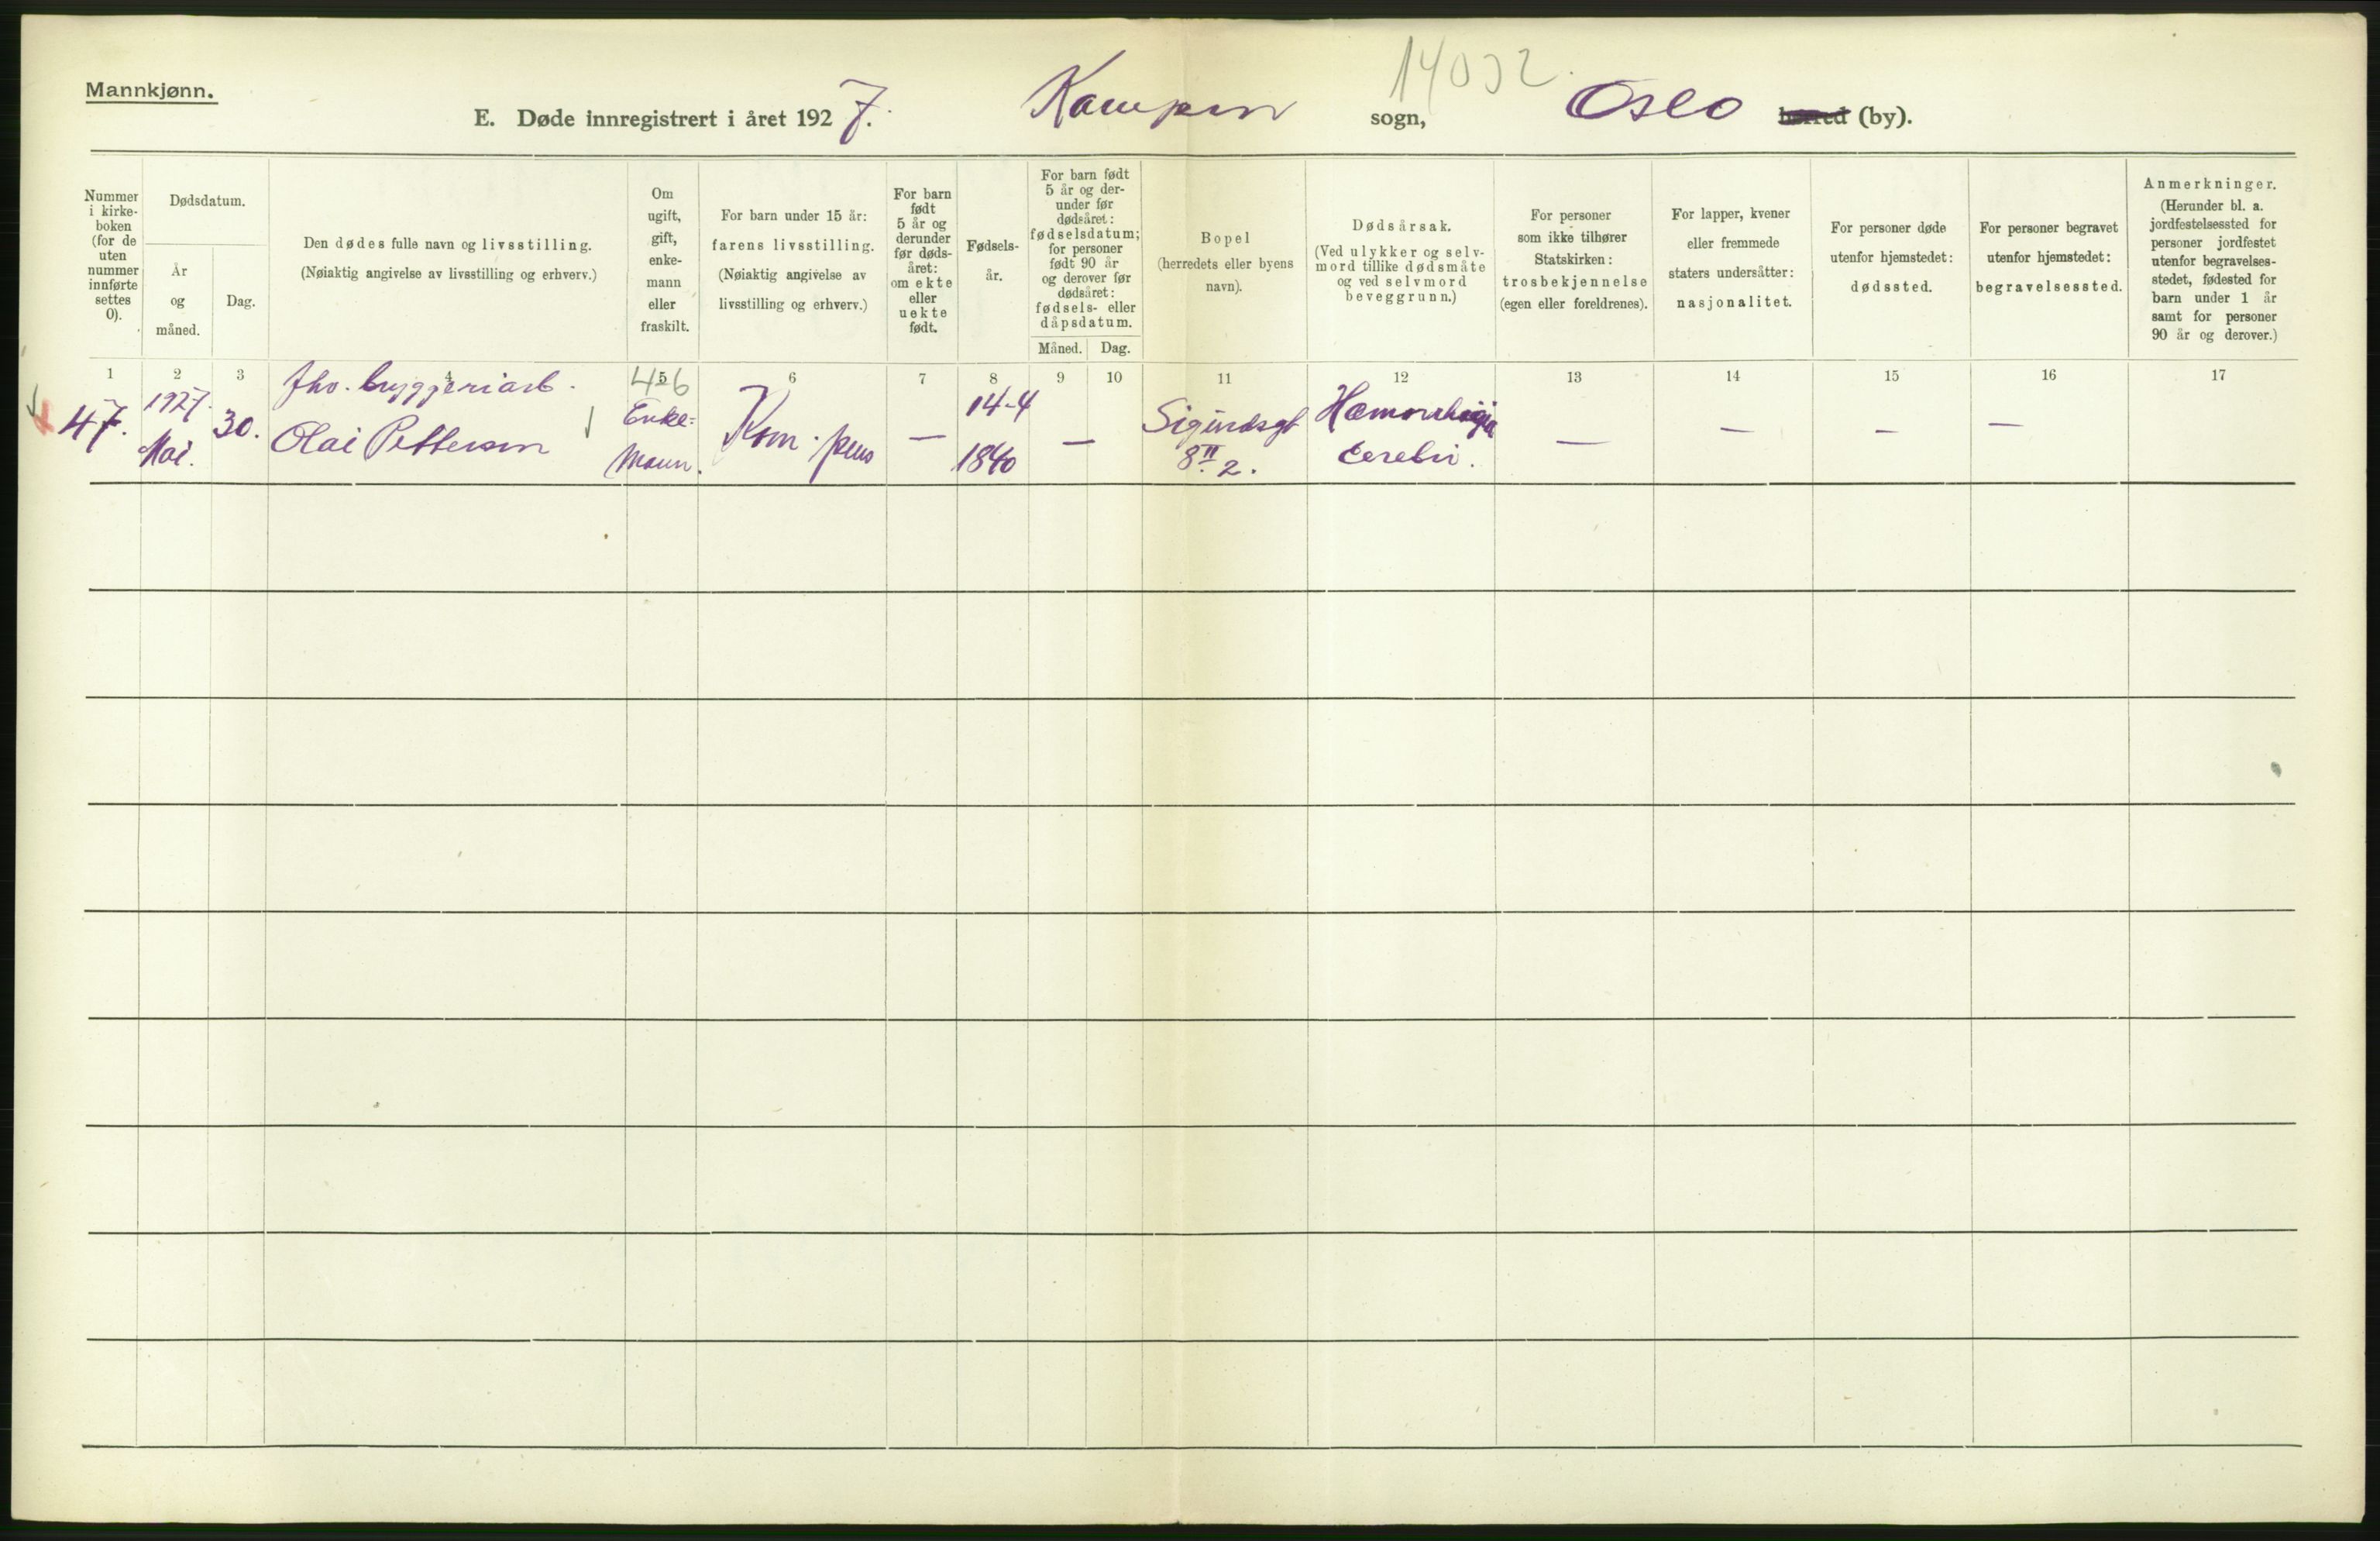 Mannkjønn.
14032
E. Døde innregistrert i året 1927. Kampen sogn, Oslo herred (by).
Nummer
i kirke-
boken
(for de
uten
nummer
innførte
settes
0).
Dødsdatum.
År
og
måned.
Dag.
Den dødes fulle navn og livsstilling.
(Nøiaktig angivelse av livsstilling og erhverv.)
Om
ugift,
gift,
enke-
mann
eller
fraskilt.
For barn under 15 år:
farens livsstilling.
(Nøiaktig angivelse av
livsstilling og erhverv.)
For barn
født
5 år og
derunder
før døds-
året:
om ekte
eller
uekte
født.
Fødsels-
år.
For barn født
5 år og der-
under før
dødsåret:
fødselsdatum;
for personer
født 90 år
og derover før
dødsåret:
fødsels- eller
dåpsdatum.
Måned. Dag.
Bopel
(herredets eller byens
navn).
Dødsårsak.
(Ved ulykker og selv-
mord tillike dødsmåte
og ved selvmord
beveggrunn.)
For personer
som ikke tilhører
Statskirken:
trosbekjennelse
(egen eller foreldrenes).
For lapper, kvener
eller fremmede
staters undersåtter:
nasjonalitet.
For personer døde
utenfor hjemstedet:
dødssted.
For personer begravet
utenfor hjemstedet:
begravelsessted.
Anmerkninger.
(Herunder bl. a.
jordfestelsessted for
personer jordfestet
utenfor begravelses-
stedet, fødested for
barn under 1 år
samt for personer
90 år og derover.)
1 2 3 4 5 6 7 8 9 10 11 12 13 14 15 16 17
47.
1927.
Mai.
30.
fhv. bryggeriarb.
Olai Pettersen
46
Enke-
mann.
Kom. pens
—
14-4
1840
—
Sigurdsgt
8 II 2.
Hæmorrhagia
cerebri.
— — — —